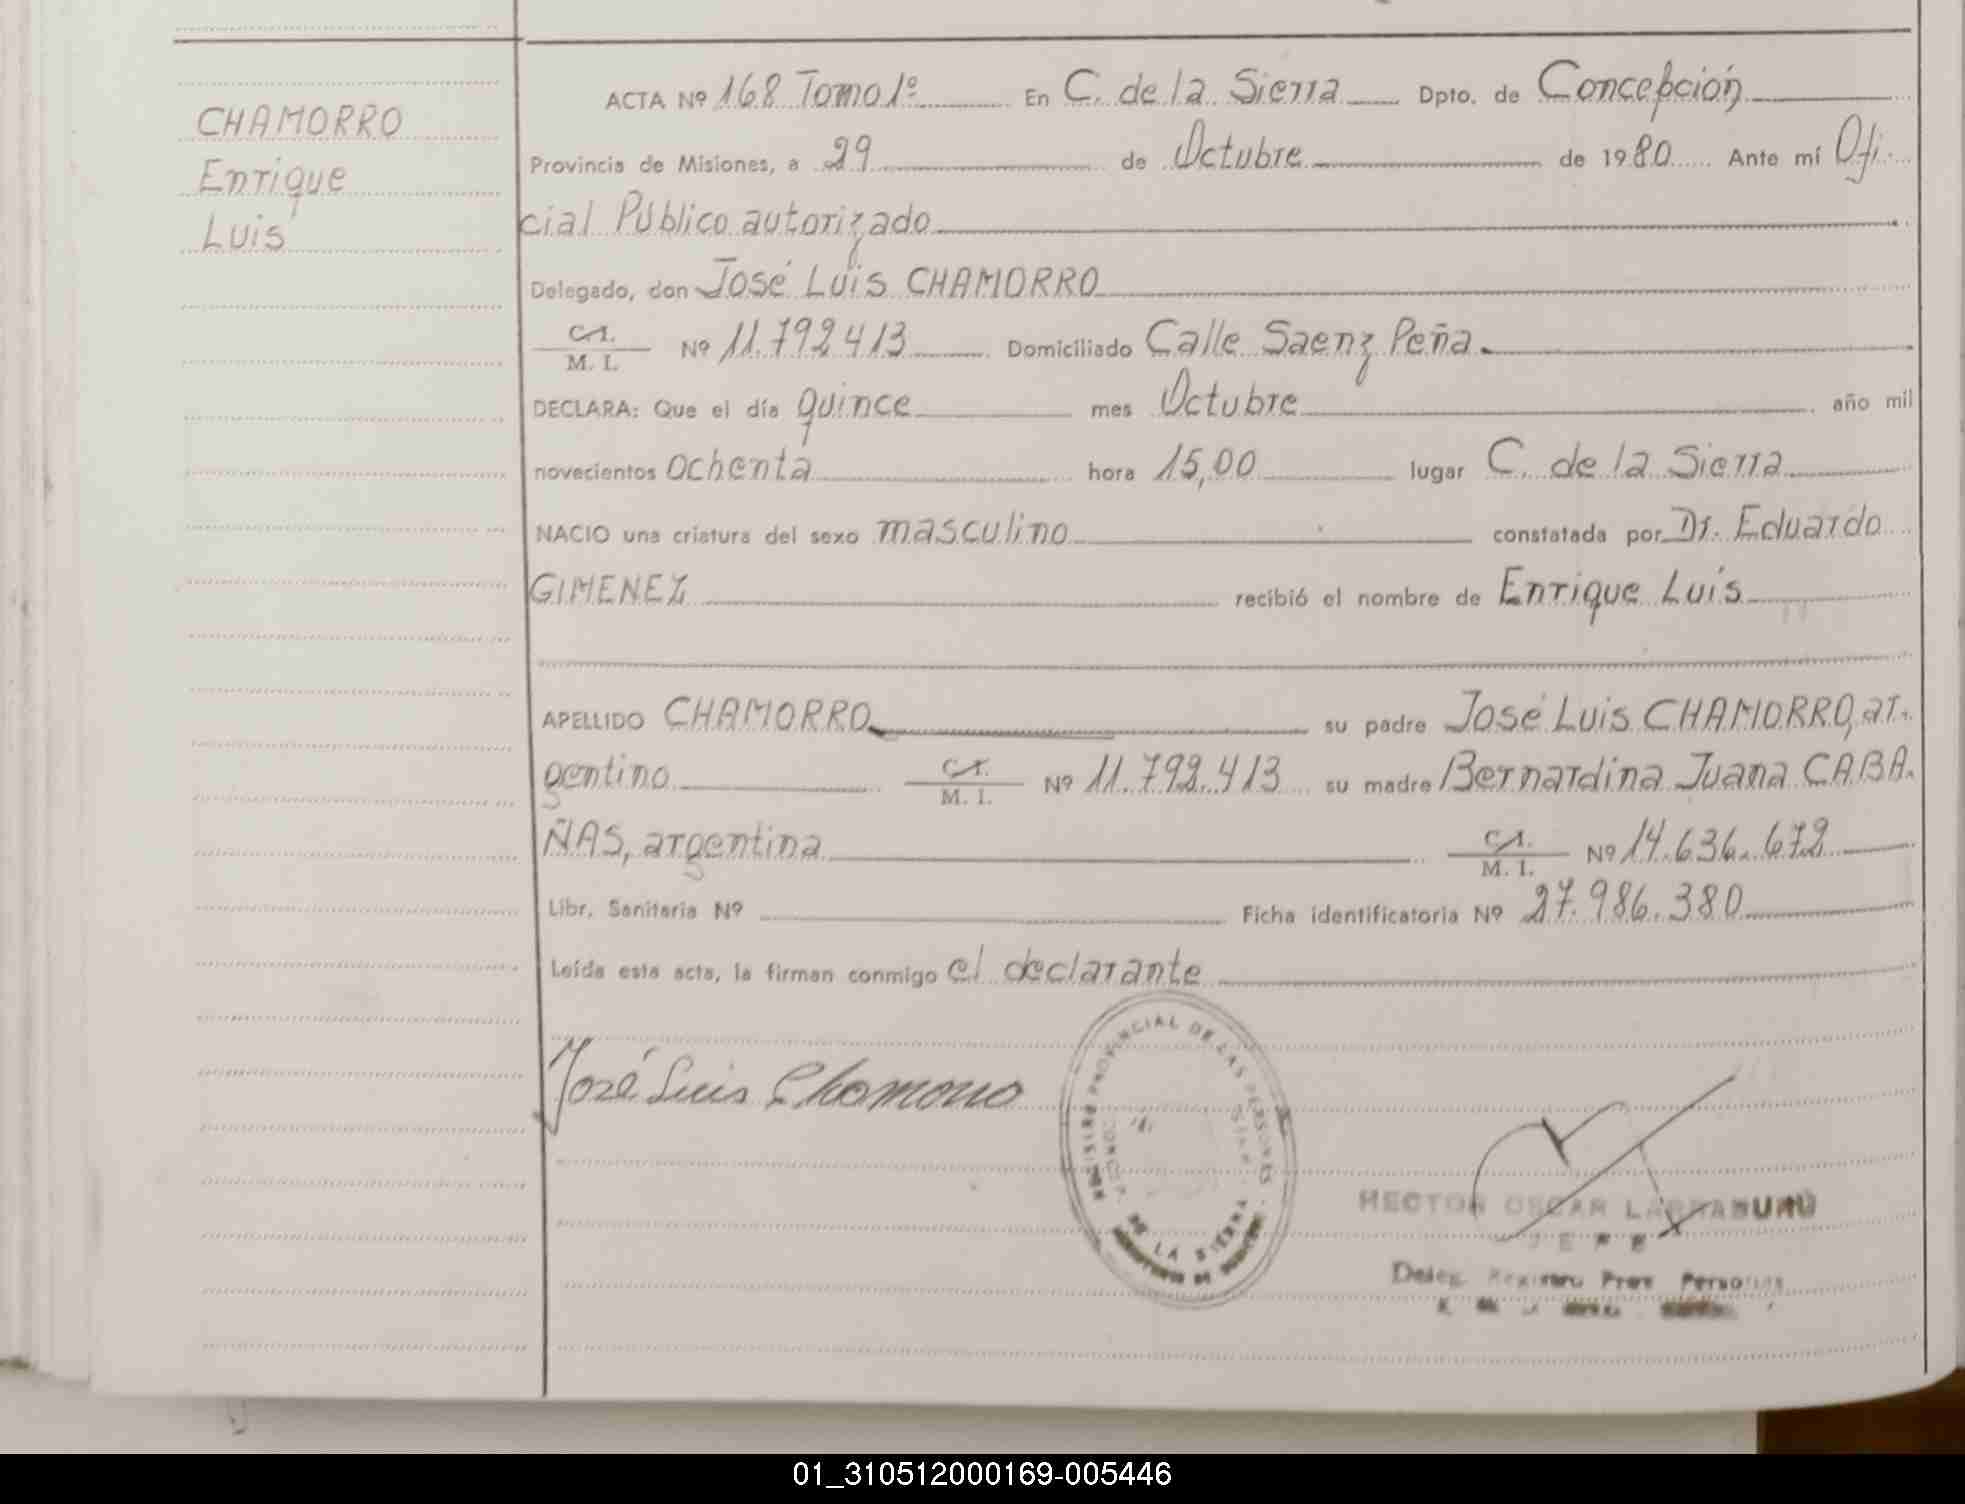 CHAMORRO
Enrique
Luis
ACTA Nº 168 Tomo 1º En C. de la Sierra Dpto. de Concepción
Provincia de Misiones, a 29 de Octubre de 1980 Ante mí Ofi-
cial Público autorizado
Delegado, don José Luis CHAMORRO
C.I.
M. I. Nº 11.792.413 Domiciliado Calle Saenz Peña.
DECLARA: Que el día quince mes Octubre año mil
novecientos ochenta hora 15,00 lugar C. de la Sierra
NACIO una criatura del sexo masculino constatada por Dr. Eduardo
GIMENEZ recibió el nombre de Enrique Luis
APELLIDO CHAMORRO su padre José Luis CHAMORRO, ar-
gentino C.I.
M. I. Nº 11.792.413 su madre Bernardina Juana CABA-
ÑAS, argentina C.I.
M. I. Nº 14.636.672
Libr. Sanitaria Nº Ficha identificatoria Nº 27.986.380
Leída esta acta, la firman conmigo el declarante
José Luis Chamorro
REGISTRO PROVINCIAL DE LAS PERSONAS
DE LA SIERRA
HECTOR OSCAR LARRABURÚ
JEFE
Deleg. Registro Prov Personas
01_310512000169-005446